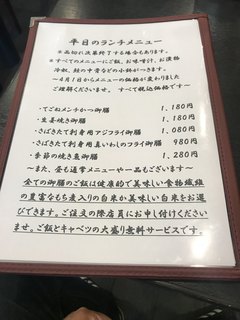 平日のランチメニュー
※品切れ次第終了する場合もあります。
※すべてのメニューにご飯、お味噌汁、お漬物
冷奴、鮭の中骨などの小鉢がつきます。
～4月1日からメニューの価格が変わりました
ご理解くださいませ。すべて税込価格です～
・てごねメンチかつ御膳 1,180円
・生姜焼き御膳 1,180円
・さばきたて刺身用アジフライ御膳 1,080円
・さばきたて刺身用真いわしのフライ御膳 980円
・季節の焼き魚御膳 1,280円
～また、昼も通常メニューや一品もございます～
全ての御膳のご飯は健康的で美味しい食物繊維
の豊富なもち麦入りの白米か美味しい白米をお選
びできます。ご注文の際店員にお申し付けください
ませ。ご飯とキャベツの大盛り無料サービスです。